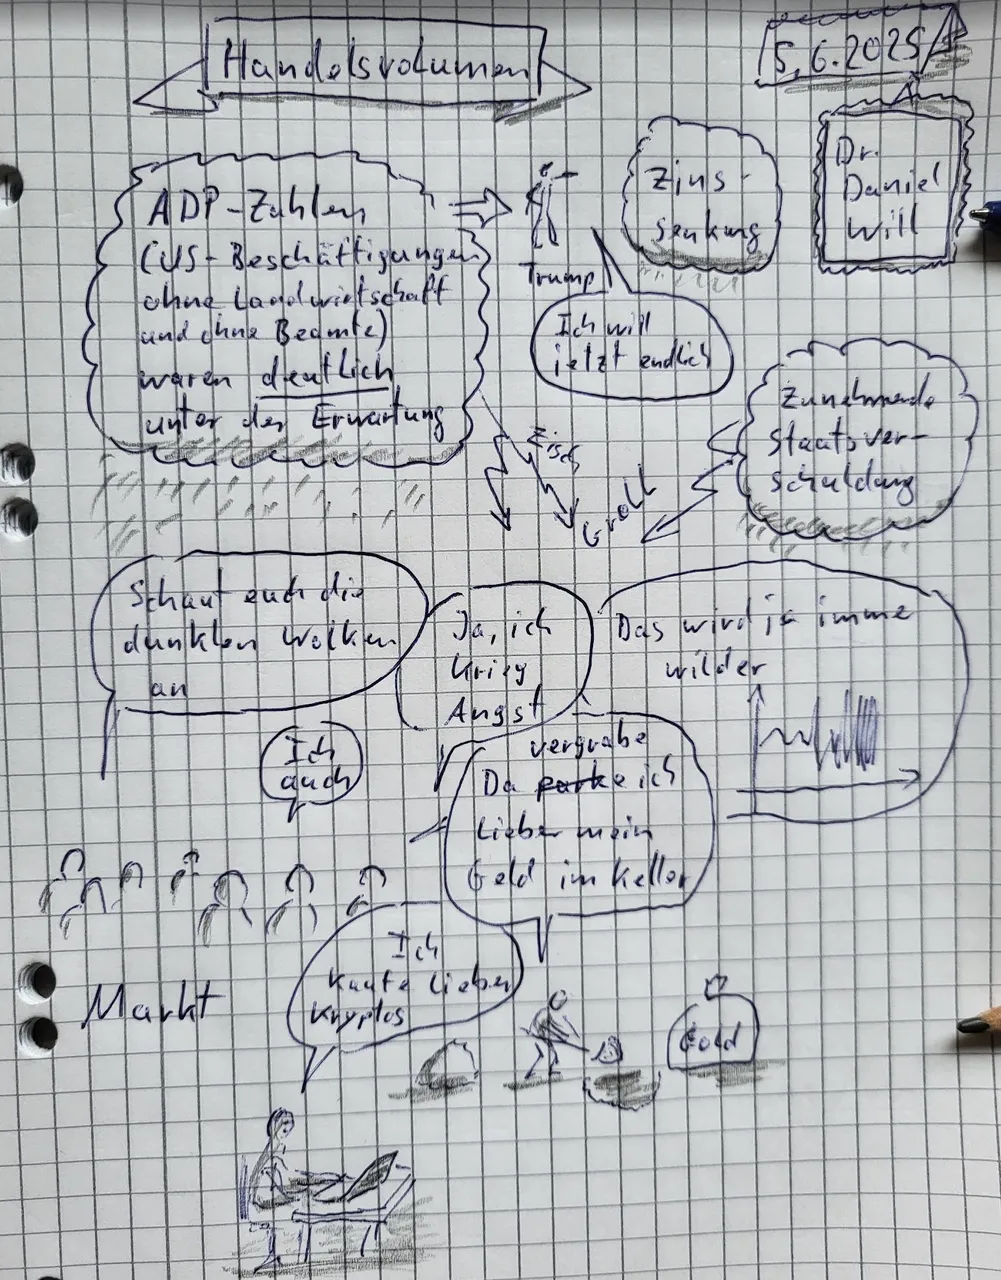 Handelsvolumen
5.6.2025
Dr.
Daniel
Will
ADP-Zahlen
(US-Beschäftigungen
ohne Landwirtschaft
und ohne Beamte)
waren deutlich
unter der Erwartung
Trump
Zins-
senkung
Ich will
jetzt endlich
Zunehmende
Staatsver-
schuldung
Zisch
Groll
Schaut euch die
dunklen Wolken
an
Ja, ich
krieg
Angst
Das wird ja imme
wilder
Ich
auch
vergrabe
Da parke ich
lieber mein
Geld im Keller
Ich
kaufe lieber
Kryptos
Markt
Gold